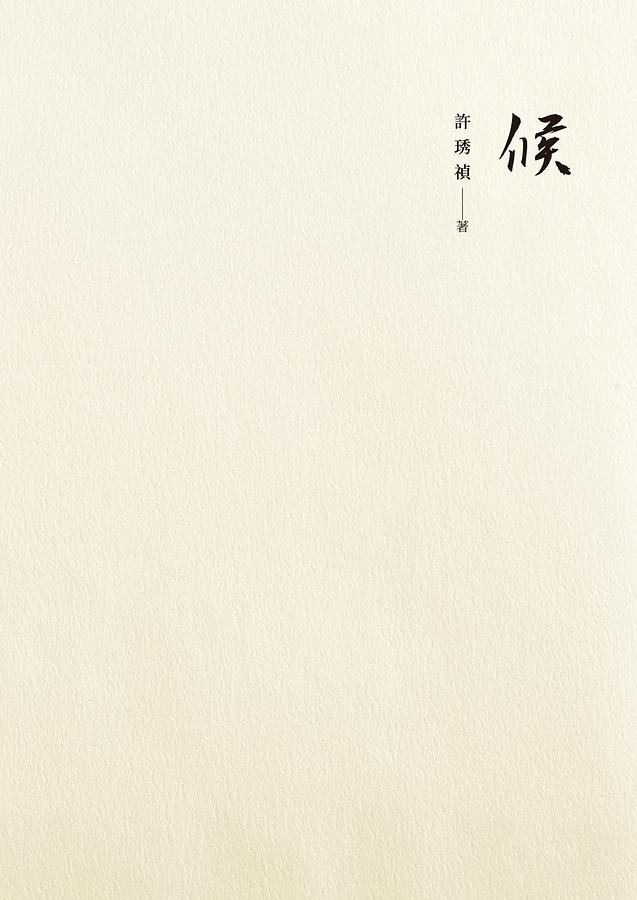 候
許琇禎──著